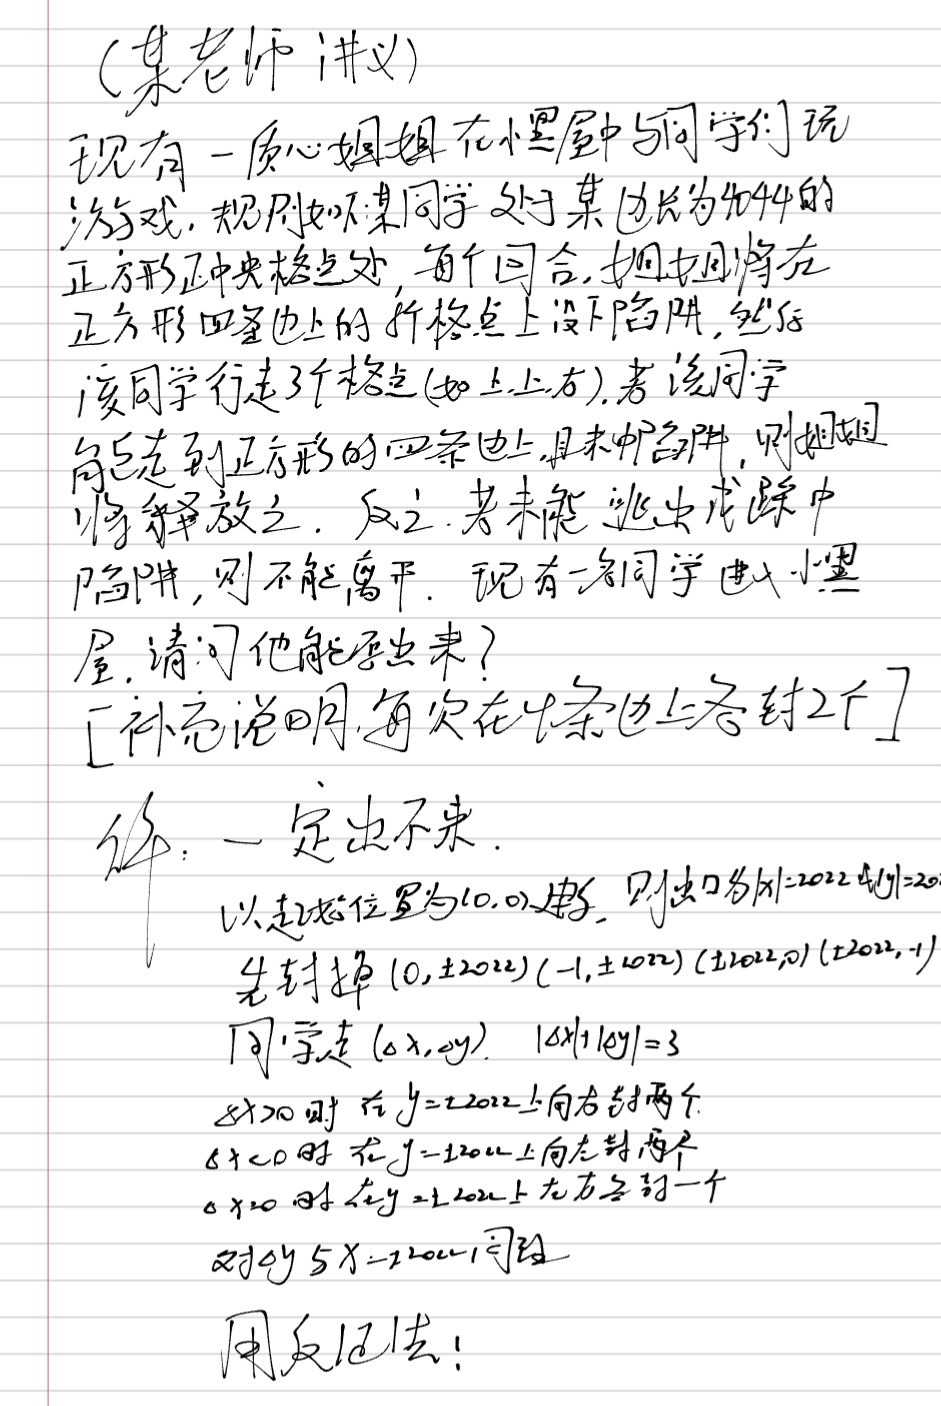 (某老师讲义)
现有一质心姐姐在小黑屋中与同学们玩
游戏.规则如下某同学处于某边长为4044的
正方形正中央格点处,每个回合,姐姐将在
正方形四条边上的8个格点上设下陷阱,然后
该同学行走3个格点(如上上右).若该同学
能走到正方形的四条边上,且未中陷阱,则姐姐
将释放之.反之.若未能逃出或踩中
陷阱,则不能离开.现有一名同学进入小黑
屋.请问他能否出来?
[补充说明,每次在4条边上各封2个]
解:一定出不来.
以起始位置为(0,0)建系,则出口为|x|=2022或|y|=202
先封掉(0,±2022)(-1,±2022)(±2022,0)(±2022,-1)
同学走(△x,△y).|△x|+|△y|=3
△x>0时在y=±2022上向右封两个
△x<0时在y=±2022上向左封两个
△x=0时在y=±2022上左右各封一个
对△y与x=±2022,同理
用反证法!